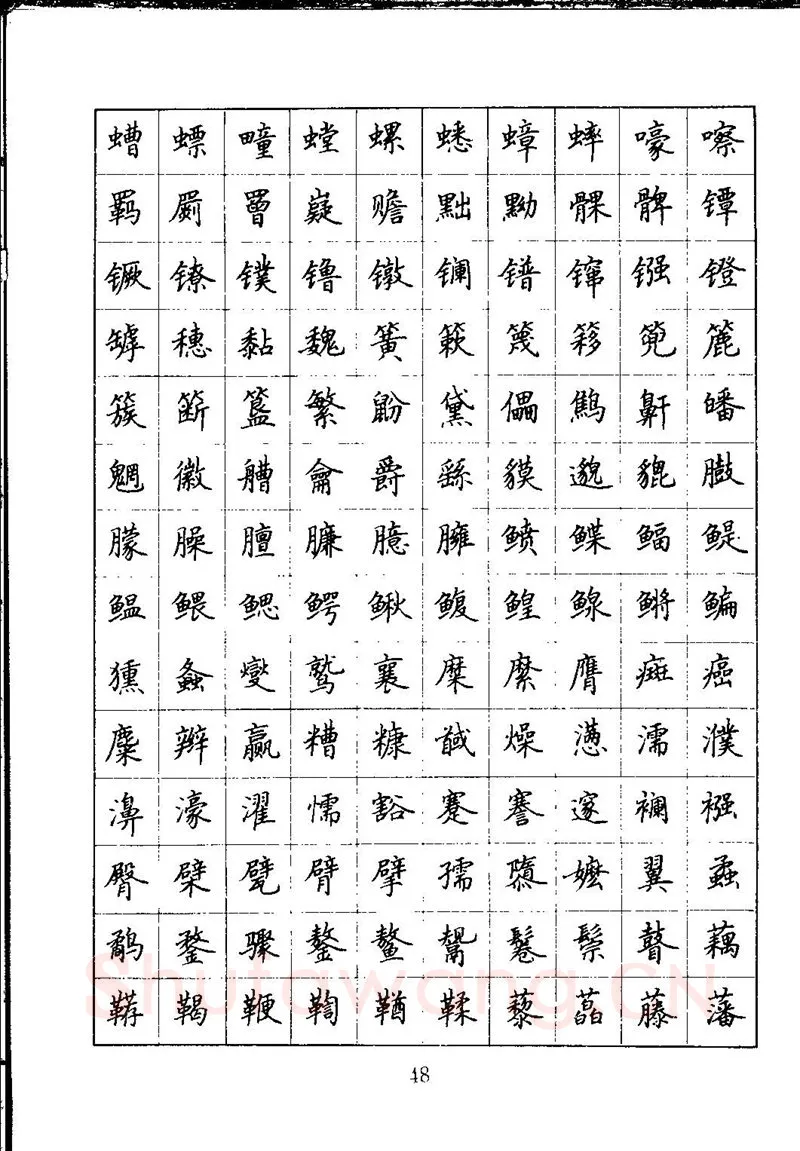 螬 螵 疃 螳 螺 蟋 蟑 蟀 嚎 嚓
羁 罽 罾 嶷 赡 黜 黝 髁 髀 镡
镢 镣 镤 镥 镦 镧 镨 镩 镪 镫
罅 穗 黏 魏 簧 簌 篾 簃 篼 簏
簇 簖 簋 繁 鼢 黛 儡 鹪 鼾 皤
魍 徽 艚 龠 爵 繇 貘 邈 貔 臌
朦 臊 膻 臁 臆 臃 鲼 鲽 鲾 鳀
鳁 鳂 鳃 鳄 鳅 鳆 鳇 鳈 鳉 鳊
獯 螽 燮 鹫 襄 糜 縻 膺 癍 癌
麋 辫 赢 糟 糠 馘 燥 懑 濡 濮
濞 濠 濯 懦 豁 蹇 謇 邃 襕 襁
臀 檗 甓 臂 擘 孺 隳 嬷 翼 蟊
鹬 鍪 骤 鏊 鳌 鬹 鬈 鬃 瞽 藕
鞯 鞨 鞭 鞫 鞧 鞣 藜 藠 藤 藩
Shufawang.CN
48